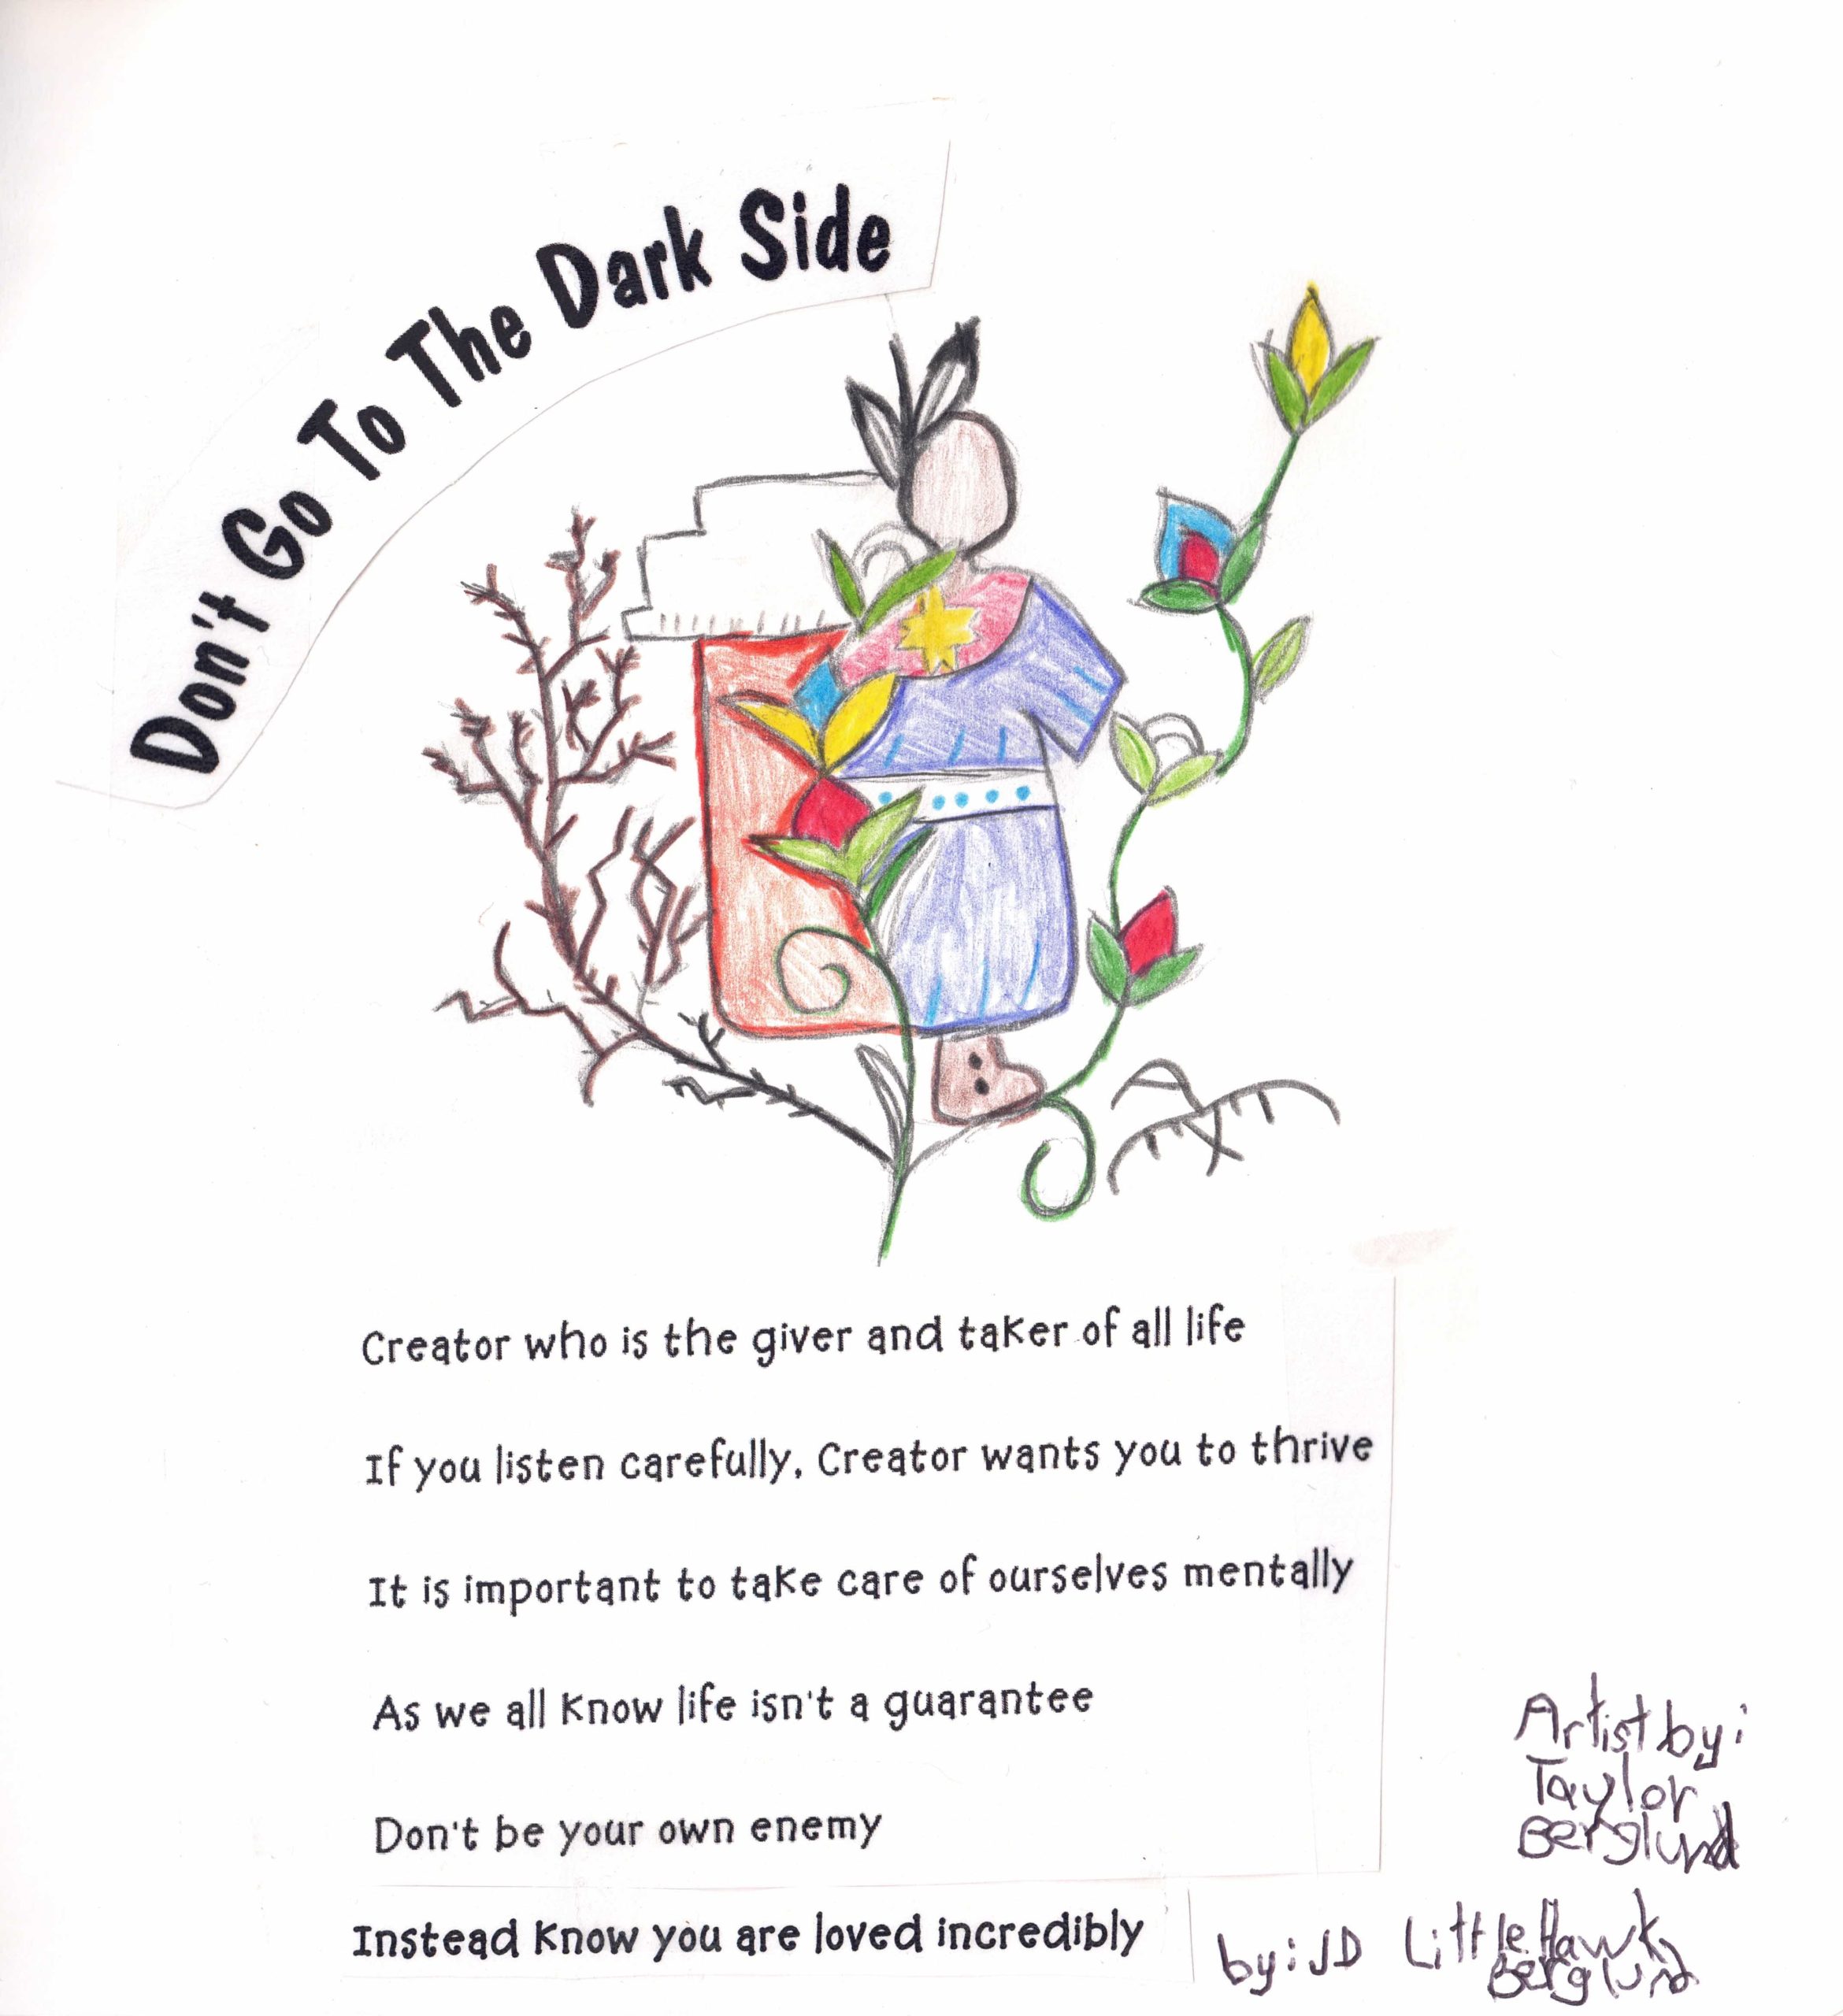 Don't Go To The Dark Side
Creator who is the giver and taker of all life
If you listen carefully, Creator wants you to thrive
It is important to take care of ourselves mentally
As we all know life isn't a guarantee
Don't be your own enemy
Instead know you are loved incredibly
Artist by:
Taylor
Berglund
by: JD Little Hawk
Berglund